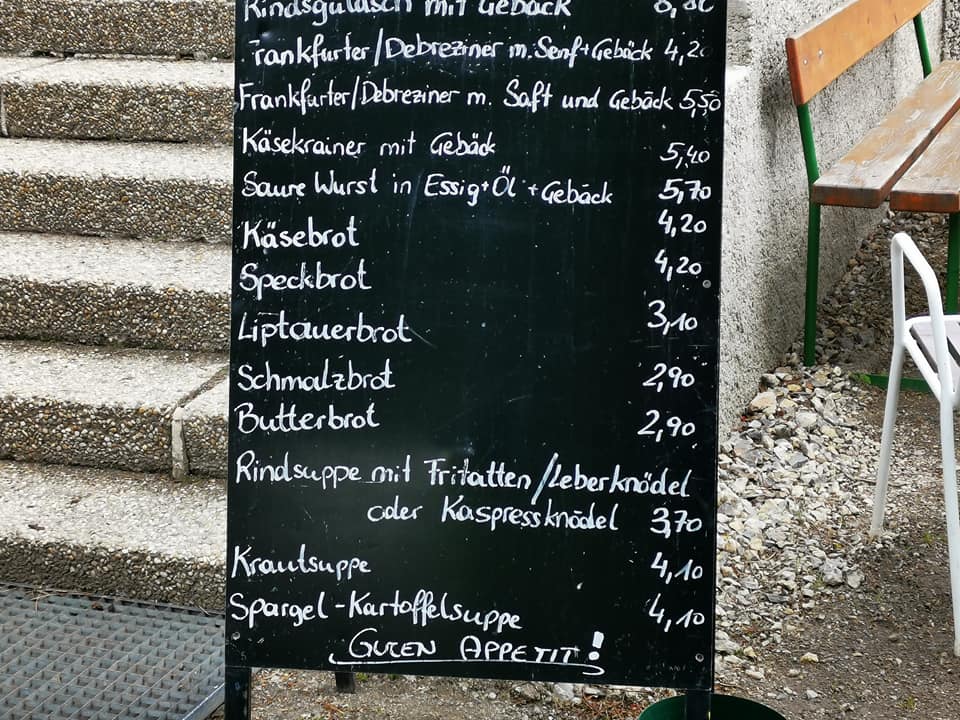 Rindsgulasch mit Gebäck
Frankfurter/Debreziner m. Senf+Gebäck 4,20
Frankfurter/Debreziner m. Saft und Gebäck 5,50
Käsekrainer mit Gebäck 5,40
Saure Wurst in Essig+Öl +Gebäck 5,70
Käsebrot 4,20
Speckbrot 4,20
Liptauerbrot 3,10
Schmalzbrot 2,90
Butterbrot 2,90
Rindsuppe mit Fritatten/Leberknödel
oder Kaspressknödel 3,70
Krautsuppe 4,10
Spargel-Kartoffelsuppe 4,10
GUTEN APPETIT!